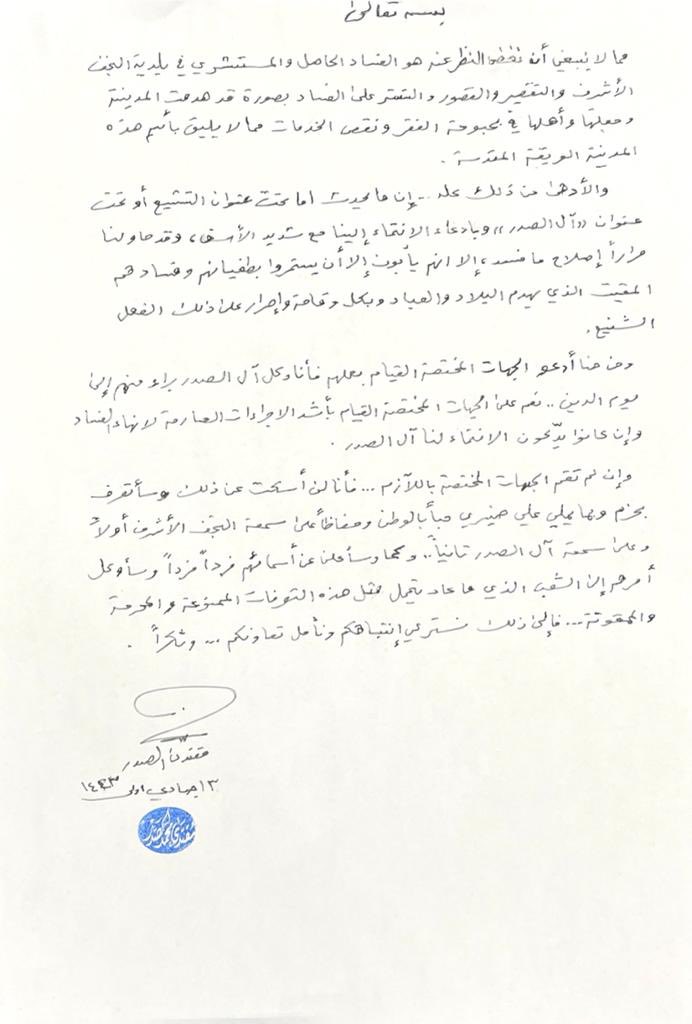 بسمه تعالى
مما لا ينبغي أن نغض النظر عنه هو الفساد الحاصل والمستشري في بلدية النجف
الأشرف والتقصير والقصور والتستر على الفساد بصورة قد هدمت المدينة
وجعلتها وأهلها في بحبوحة الفقر ونقص الخدمات مما لا يليق بأسم هذه
المدينة العريقة المقدسة .
والأدهى من ذلك كله .. إن ما يحدث اما تحت عنوان التشيع أو تحت
عنوان ((آل الصدر)) وبادعاء الانتماء إلينا مع شديد الأسف، وقد حاولنا
مراراً إصلاح ما فسد، إلا انهم يأبون إلا أن يستمروا بطغيانهم وفسادهم
المقيت الذي يهدم البلاد والعباد وبكل وقاحة وإصرار على ذلك الفعل
الشنيع.
ومن هنا أدعو الجهات المختصة القيام بعملهم فأنا وكل آل الصدر براء منهم إلى
يوم الدين .. نعم على الجهات المختصة القيام بأشد الاجراءات الصارمة لانهاء الفساد
وإن كانوا يدّعون الانتماء لنا آل الصدر .
وإن لم تقم الجهات المختصة باللازم ... فأنا لن أسكت عن ذلك وسأتصرف
بحزم وبما يملي علي ضميري حباً بالوطن وحفاظاً على سمعة النجف الأشرف أولاً
وعلى سمعة آل الصدر ثانياً .. وكما وسأعلن عن أسمائهم فرداً فرداً وسأوكل
أمرهم إلى الشعب الذي ما عاد يتحمل مثل هذه التصرفات الممنوعة والمحرمة
والممقوتة ... فإلى ذلك نسترعي إنتباهكم ونأمل تعاونكم .. وشكراً .
مقتدى الصدر
١٣ جمادي اولى ١٤٤٣